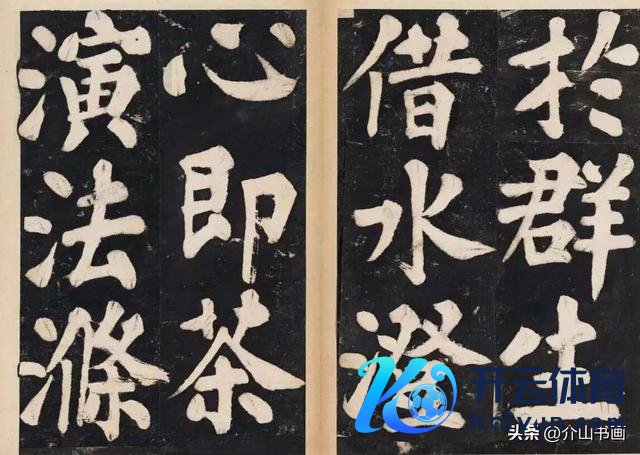 於群
借水澄
心即茶
演法滌
开云体育
头条 @介山书画